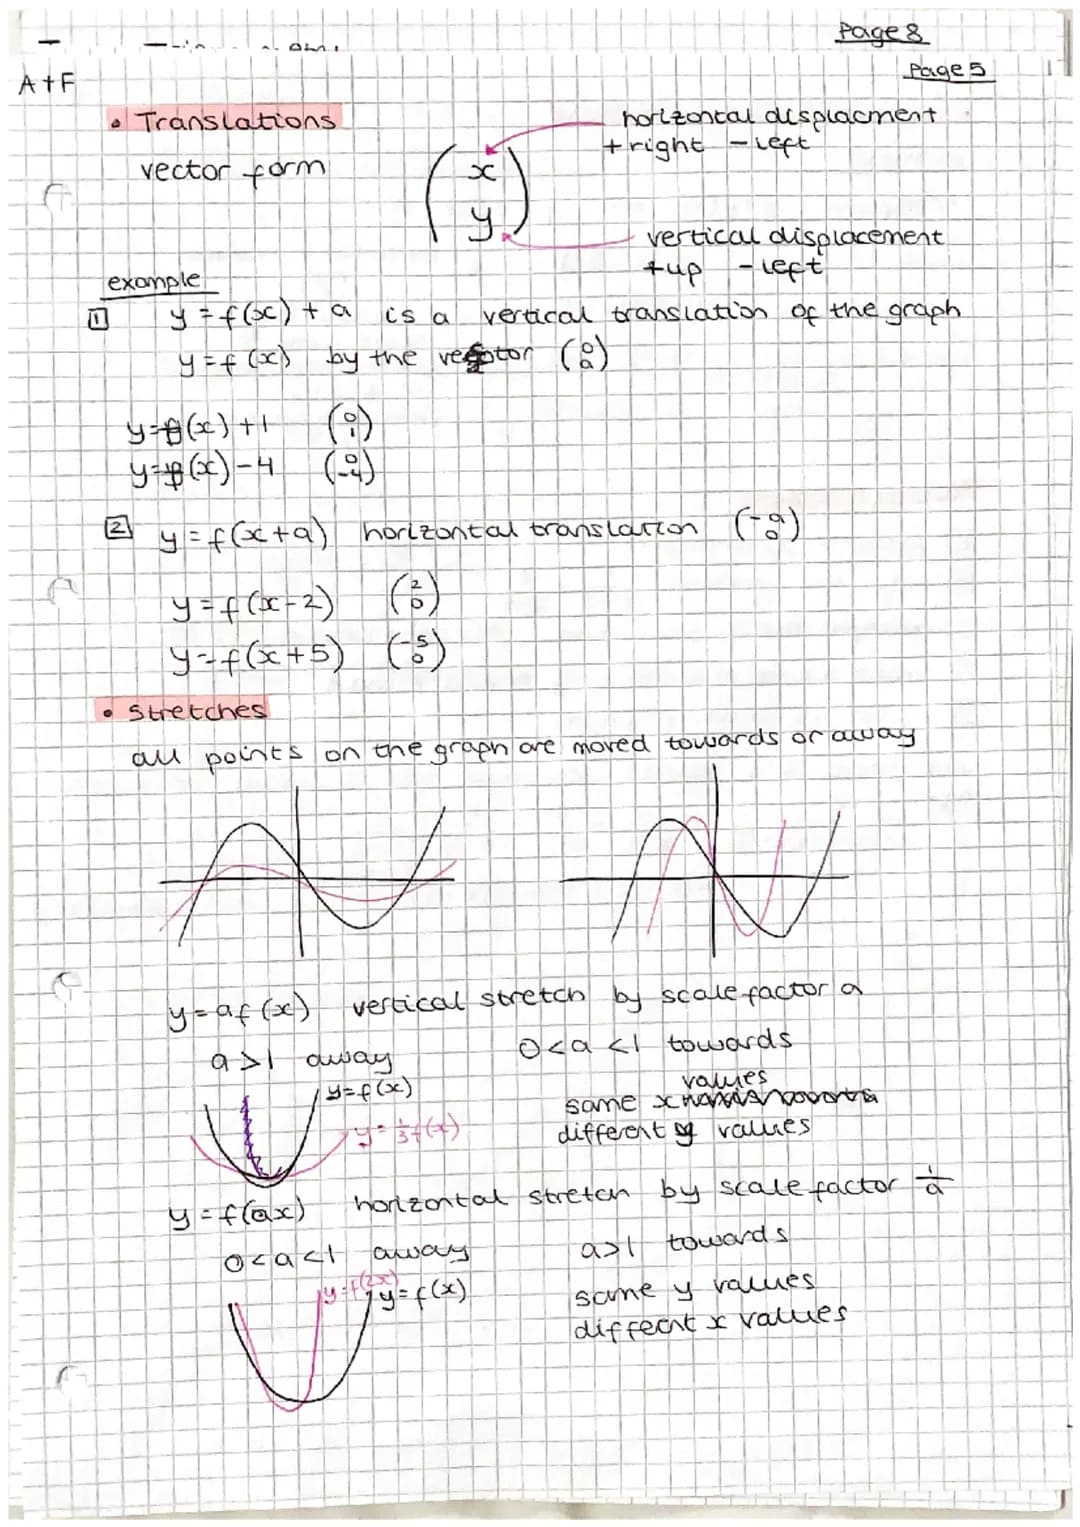 Page 8
Page 5
A+F
• Translations
horizontal displacment
+right -left
vector form
(x
y)
vertical displacement
+up -left
example
1 y=f(x)+a is a vertical translation of the graph
y=f(x) by the vector (0
a)
y=f(x)+1 (0
1)
y=f(x)-4 (0
-4)
2 y=f(x+a) horizontal translation (-a
0)
y=f(x-2) (2
0)
y=f(x+5) (-5
0)
• Stretches
all points on the graph are moved towards or away
y=af(x) vertical stretch by scale factor a
a>1 away 0<a<1 towards
y=f(x)
y=1/3f(x)
same x values
different y values
y=f(ax) horizontal stretch by scale factor 1/a
0<a<1 away a>1 towards
y=f(2x) y=f(x)
same y values
diffecnt x values